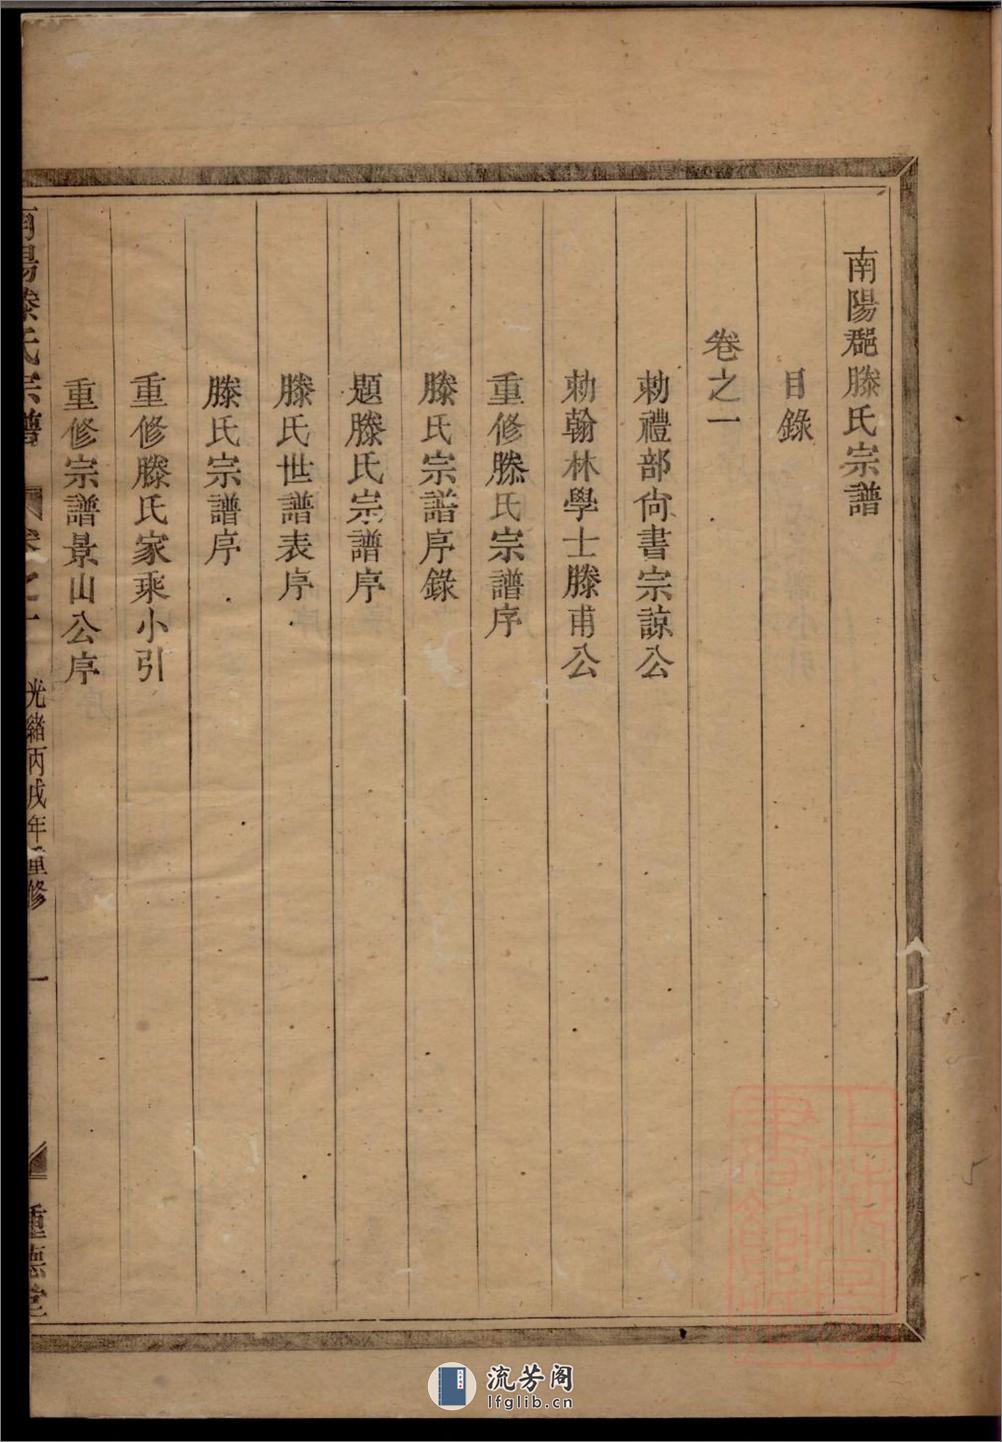 南陽郡滕氏宗譜
目錄
卷之一
勅禮部尙書宗諒公
勅翰林學士滕甫公
重修滕氏宗譜序
滕氏宗譜序錄
題滕氏宗譜序
滕氏世譜表序
滕氏宗譜序
重修滕氏家乘小引
重修宗譜景山公序
南陽滕氏宗譜
卷之一
光緒丙戌年重修
一
流芳阁
lfglib.cn